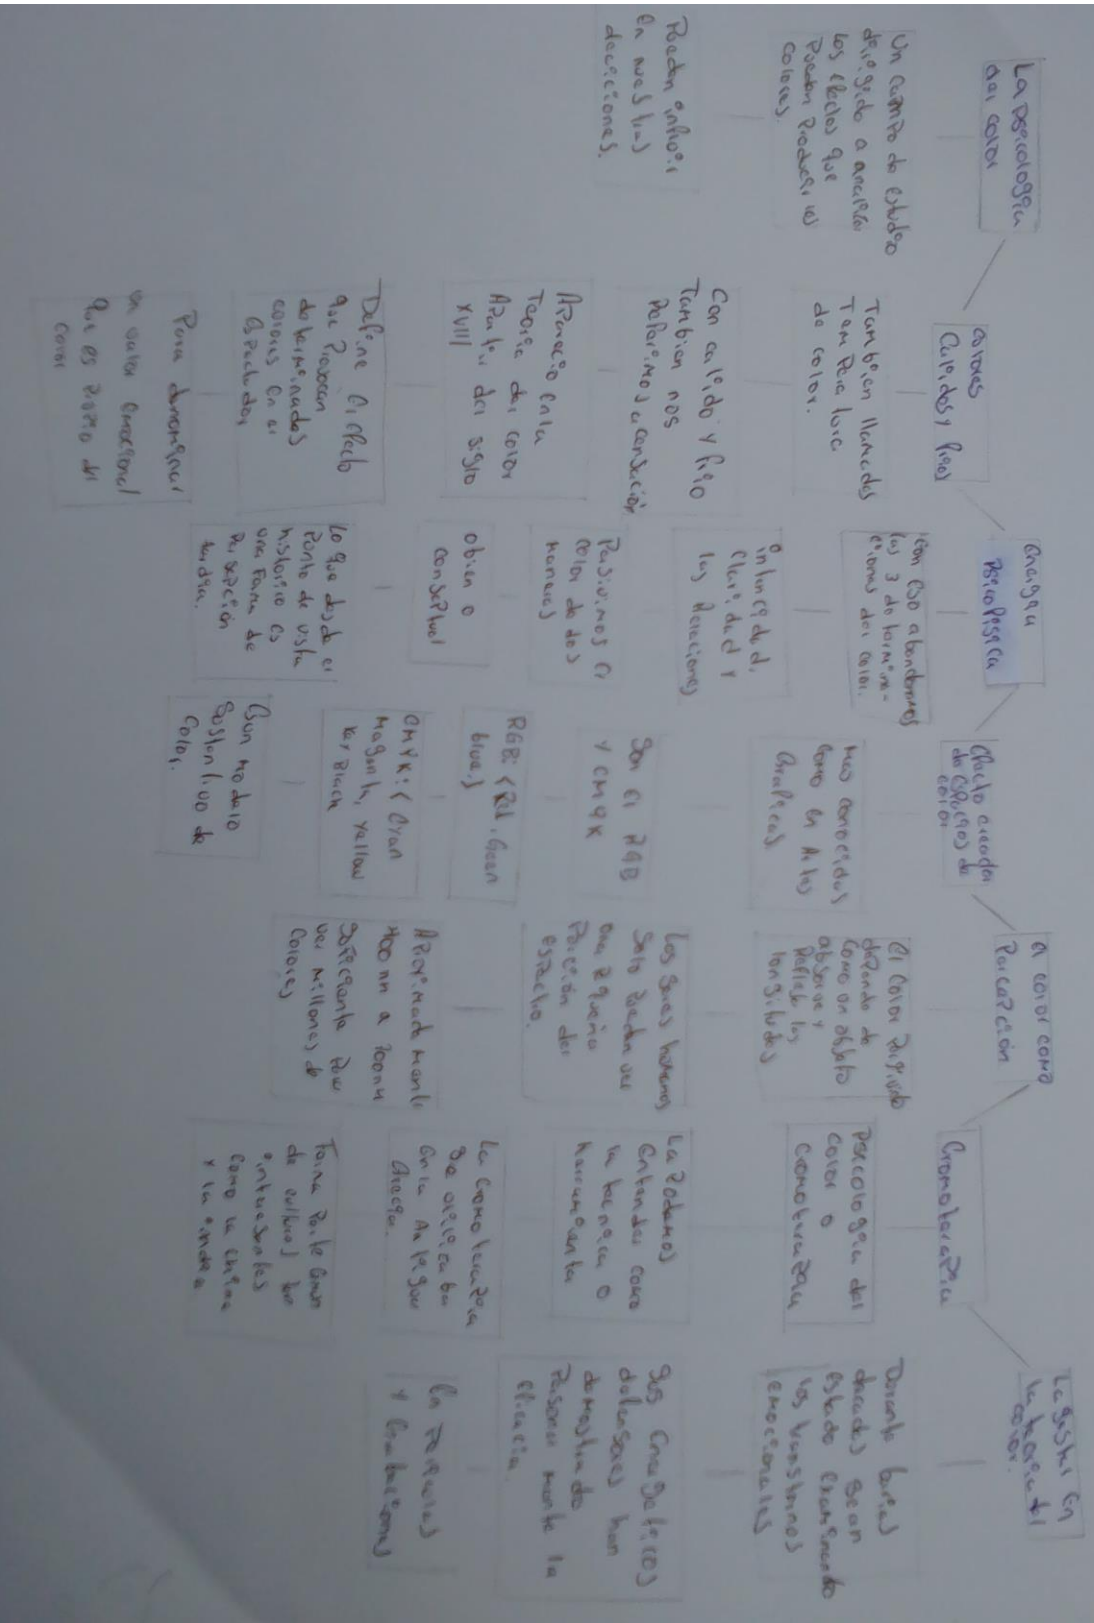 La psicologia
del color
Un campo de estudio
dirigido a analizar
los efectos que
Pueden Producir los
colores.
Pueden influir
en nuestras
decisiones.
colores
Calidos y frios
Tambien llamados
Temperatura
de color.
Con calido y frio
Tambien nos
referimos a sensación
Aparecio en la
Teoria del color
Apartir del siglo
XVIII
Define el efecto
que Provocan
determinados
colores en el
espectador
Para denominar
un valor emocional
que es Propio del
color
energia
Psicologica
Con eso abandonamos
las 3 determina-
ciones del color.
intencidad,
claridad y
las Reacciones
Persivimos el
color de dos
maneras
obien o
conseptual
lo que desde el
Punto de vista
historico es
una forma de
Persepción
tardia.
efecto creador
de espacios de
color
mas conocidos
como en Artes
Graficas
Son el RGB
y CMYK
RGB: (Red, Green
blue.)
CMYK: (Cyan
magenta, yellow
key Black
es un modelo
Sostantivo de
Color.
el color como
Percepción
el color Percivido
depende de
como un objeto
absorve y
refleja las
longitudes
Los seres humanos
Solo Pueden ver
una Pequeña
Porción del
espectro.
Aproximadamente
400 nm a 700nm
Suficiente Para
ver millones de
Colores
Cromoterapia
Psicologia del
color o
cromoterapia
La Podemos
entender como
la tecnica o
herramienta
La Cromoterapia
se utilizaba
en la Antigua
Grecia.
Forma Parte
de culturas tan
interesantes
como la china
y la india
La gestal en
la teoria del
color.
Durante barias
decadas sean
estado examinando
los transtornos
emocionales
Sus energeticos
defensores han
demostrado
Personalmente la
eficacia
en Peliculas
y Grabaciones